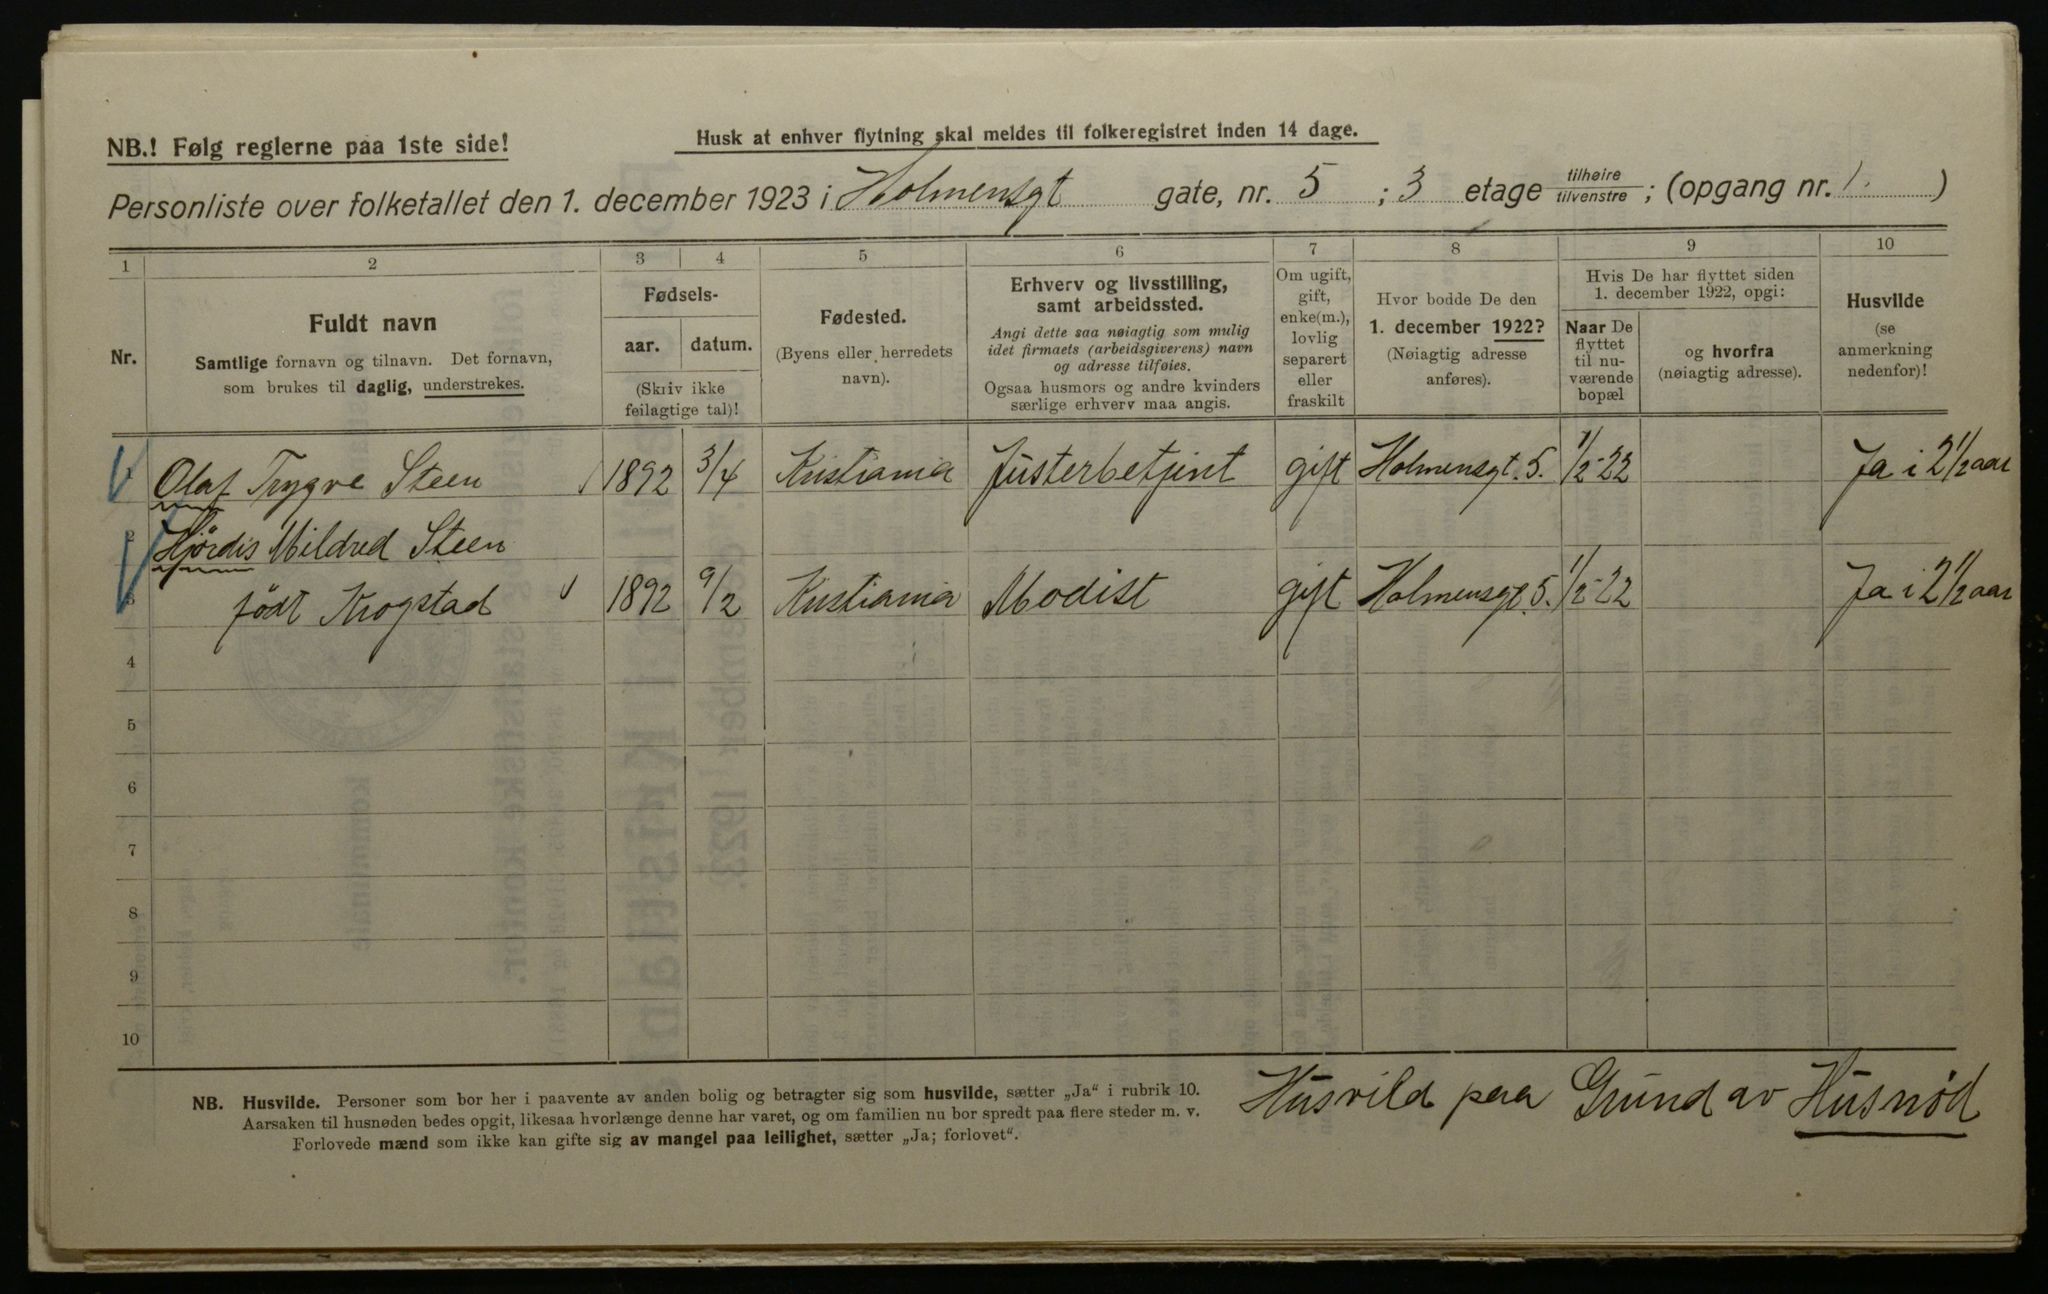 NB.! Følg reglerne paa 1ste side!
Husk at enhver flytning skal meldes til folkeregistret inden 14 dage.
Personliste over folketallet den 1. december 1923 i Holmensgt gate, nr. 5 ; 3 etage tilhøire tilvenstre ; (opgang nr. 1. )
1 2 3 4 5 6 7 8 9 10
Nr.
Fuldt navn
Samtlige fornavn og tilnavn. Det fornavn,
som brukes til daglig, understrekes.
Fødsels-
aar. datum.
(Skriv ikke
feilagtige tal)!
Fødested.
(Byens eller herredets
navn).
Erhverv og livsstilling,
samt arbeidssted.
Angi dette saa nøiagtig som mulig
idet firmaets (arbeidsgiverens) navn
og adresse tilføies.
Ogsaa husmors og andre kvinders
særlige erhverv maa angis.
Om ugift,
gift,
enke(m.),
lovlig
separert
eller
fraskilt
Hvor bodde De den
1. december 1922?
(Nøiagtig adresse
anføres).
Hvis De har flyttet siden
1. december 1922, opgi:
Naar De
flyttet
til nu-
værende
bopæl
og hvorfra
(nøiagtig adresse).
Husvilde
(se
anmerkning
nedenfor)!
1 Olaf Trygve Steen 1892 3/4 Kristiania Justerbetjent gift Holmensgt. 5. 1/2-22 Ja i 2 1/2 aar
2 Hjørdis Mildred Steen
3 født Krogstad 1892 9/2 Kristiania Modist gift Holmensgt. 5. 1/2-22 Ja i 2 1/2 aar
4
5
6
7
8
9
10
NB. Husvilde. Personer som bor her i paavente av anden bolig og betragter sig som husvilde, sætter „Ja“ i rubrik 10.
Aarsaken til husnøden bedes opgit, likesaa hvorlænge denne har varet, og om familien nu bor spredt paa flere steder m. v.
Forlovede mænd som ikke kan gifte sig av mangel paa leilighet, sætter „Ja; forlovet“.
Husvild paa Grund av Husnød